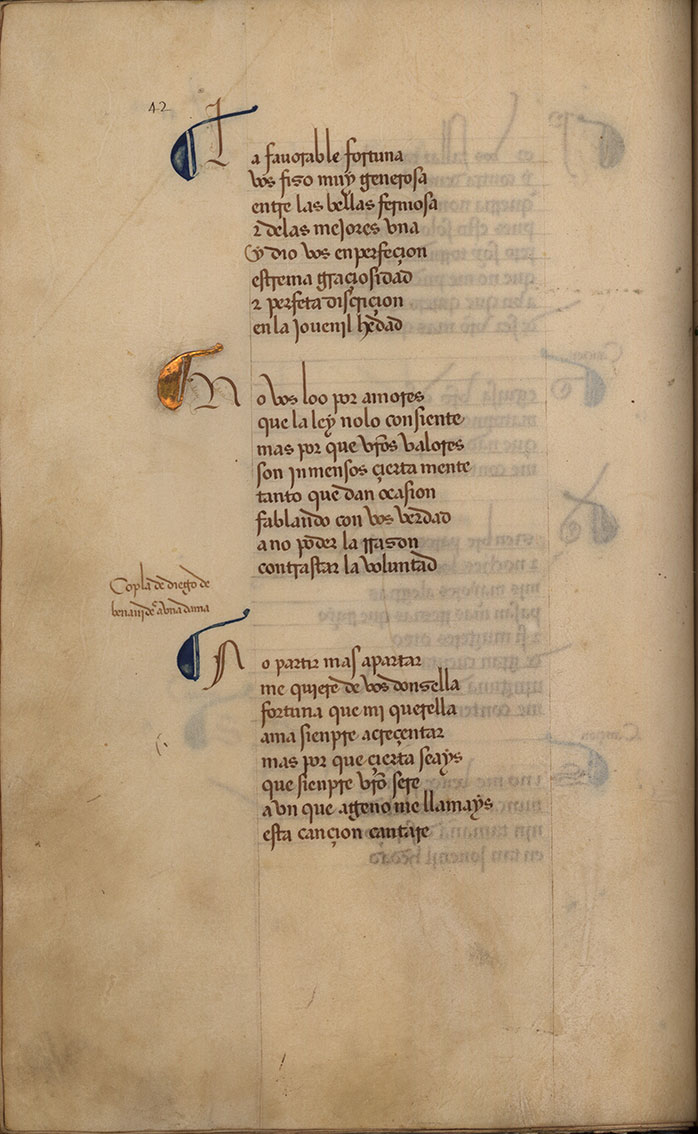 42
La fauorable fortuna
vos fiso muy generosa
entre las bellas fermosa
τ delas mejores vna
y dio vos en perfeçion
estrema graçiosidad
τ perfeta discriçion
en la jouenil hedad
No vos loo por amores
que la ley nolo consiente
mas por que vr̃os valores
son jnmensos çierta mente
tanto que dan ocasion
fablando con vos verdad
a no poder la rrason
contrastar la voluntad
Copla de diego de
benauide a vna dama
A o partir mas apartar
me quiere de vos donsella
fortuna que mi querella
ama sienpre acreçentar
mas por que çierta seays
que sienpre vr̃o sere
a vn que ageno me llamays
esta cançion cantare